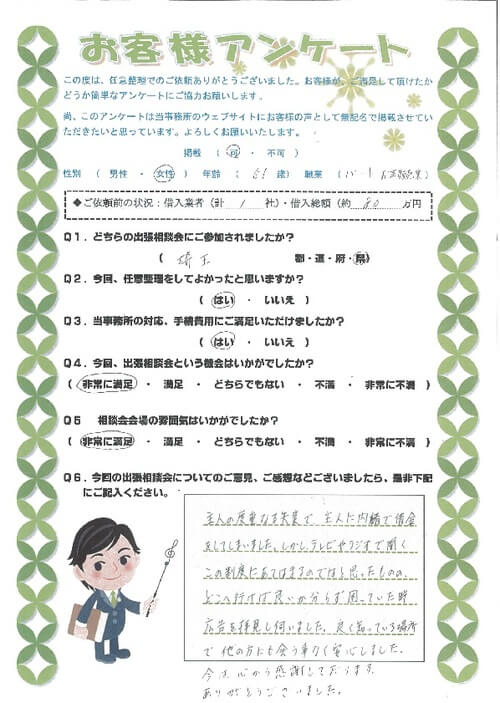 お客様アンケート
この度は、任意整理でのご依頼ありがとうございました。お客様が、ご満足して頂けたか
どうか簡単なアンケートにご協力お願いします。
尚、このアンケートは当事務所のウェブサイトにお客様の声として無記名で掲載させてい
ただきたいと思っています。よろしくお願いいたします。
掲載 ( 可 ・ 不可 )
性別 ( 男性 ・ 女性 ) 年齢 ( 歳) 職業 ( パート )
◆ご依頼前の状況:借入業者(計 1 社)・借入総額(約 80 万円
Q1.どちらの出張相談会にご参加されましたか?
( 埼玉 都・道・府・県)
Q2.今回、任意整理をしてよかったと思いますか?
( はい ・ いいえ )
Q3.当事務所の対応、手続費用にご満足いただけましたか?
( はい ・ いいえ )
Q4.今回、出張相談会という機会はいかがでしたか?
( 非常に満足 ・ 満足 ・ どちらでもない ・ 不満 ・ 非常に不満 )
Q5 相談会会場の雰囲気はいかがでしたか?
( 非常に満足 ・ 満足 ・ どちらでもない ・ 不満 ・ 非常に不満 )
Q6.今回の出張相談会についてのご意見、ご感想などございましたら、是非下記
にご記入ください。
主人の度重なる失業で 主人に内緒で借金
をしてしまいました。しかしテレビやラジオで聞く
この制度にあてはまるのではと思ったものの、
どこへ行けば良いか分らず困っていた時
広告を拝見し伺いました。良く知っている場所
で他の方にも会う事なく安心しました。
今は心から感謝しております。
ありがとうございました。